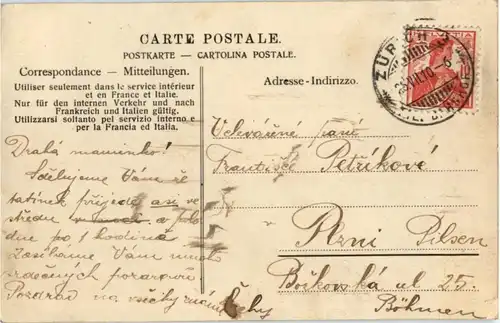 CARTE POSTALE.
POSTKARTE — CARTOLINA POSTALE.
Correspondance — Mitteilungen.
Adresse-Indirizzo.
Utiliser seulement dans le service intérieur
et en France et Italie.
Nur für den internen Verkehr und nach
Frankreich und Italien gültig.
Utilizzarsi soltanto pel servizio interno e
per la Francia ed Italia.
ZÜRICH
HELVETIA
Drahá maminko!
Sdělujeme Vám že
tatínek přijede asi ve
středu
dne po 1 hodině
Zasíláme Vám mnoho
srdečných pozdravů
Pozdrav na všechny známé
paní
Františce Petříkové
Plzni Pilsen
ul 25.
Böhmen